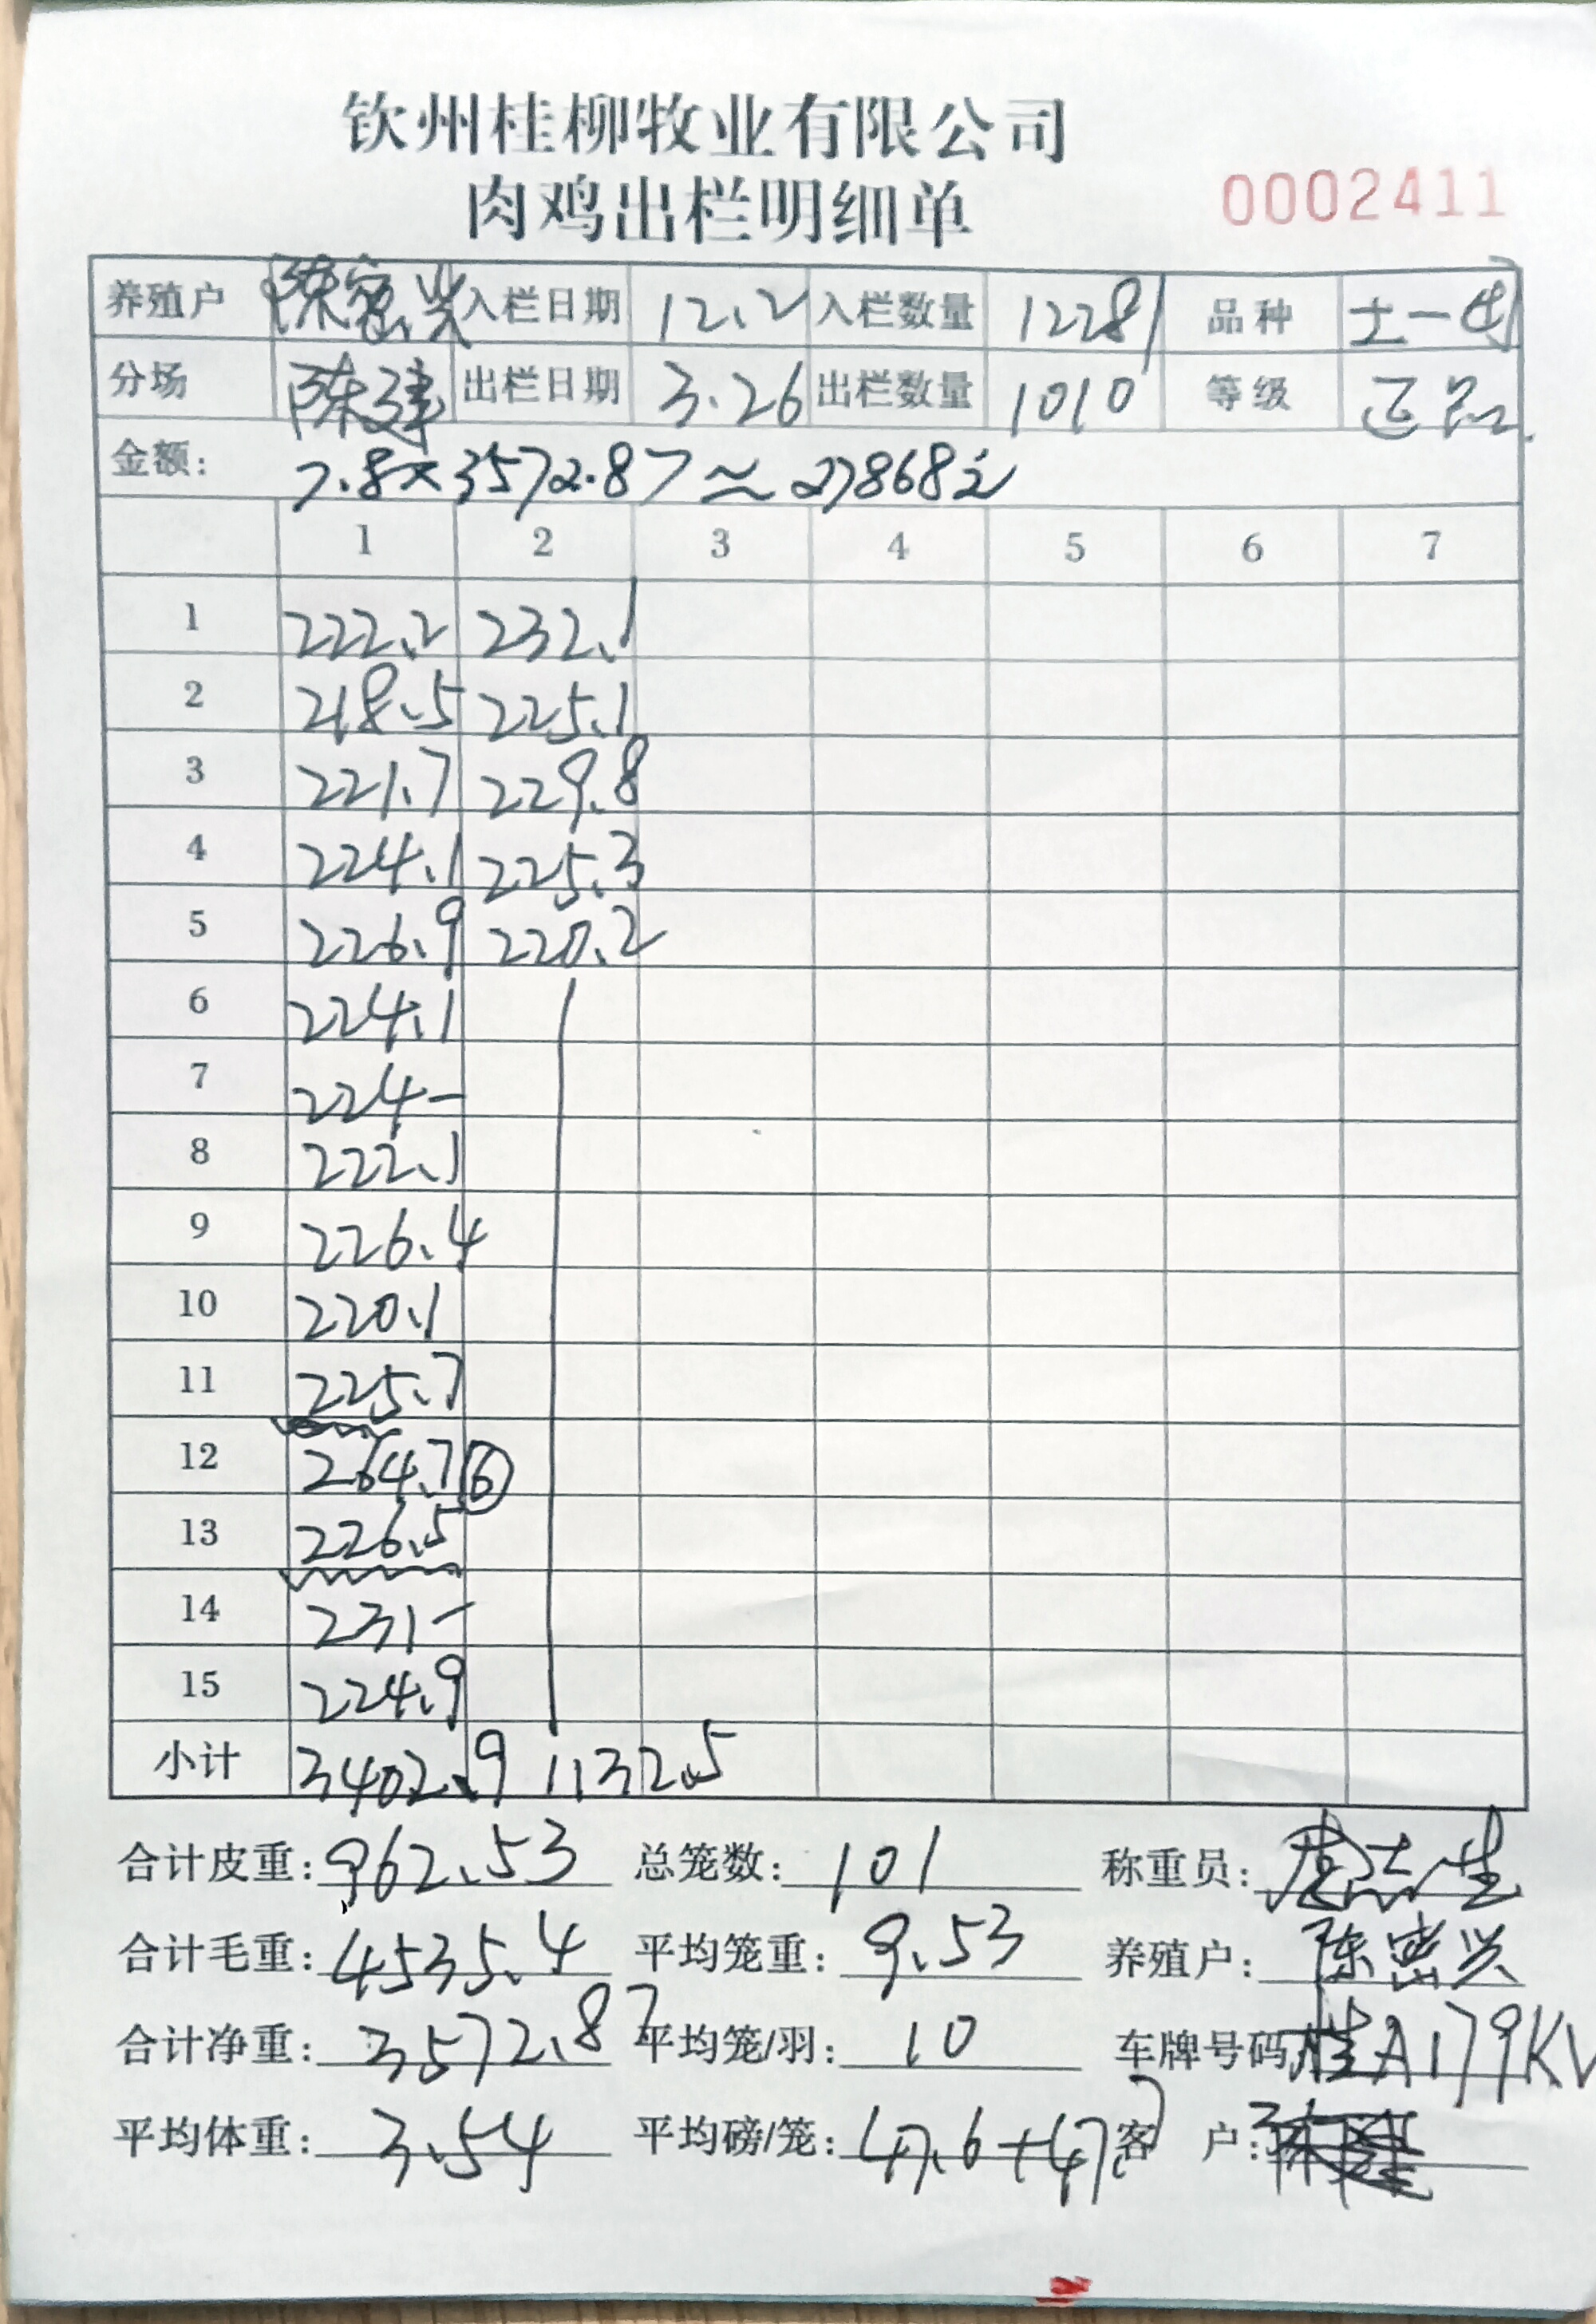 钦州桂柳牧业有限公司
肉鸡出栏明细单
0002411
养殖户 陈密兴 入栏日期 12.2 入栏数量 12281 品种 土一
分场 陈建 出栏日期 3.26 出栏数量 1010 等级 正品
金额: 7.8×3572.87≈27868元
1 2 3 4 5 6 7
1 222.2 232.1
2 218.5 225.1
3 221.7 229.8
4 224.1 225.3
5 226.9 220.2
6 224.1
7 224-
8 222.1
9 226.4
10 220.1
11 225.7
12 264.7 ⑥
13 226.5
14 231-
15 224.9
小计 3402.9 1132.5
合计皮重: 962.53 总笼数: 101 称重员:
合计毛重: 4535.4 平均笼重: 9.53 养殖户: 陈密兴
合计净重: 3572.87 平均笼/羽: 10 车牌号码: 桂A179KV
平均体重: 3.54 平均磅/笼: 47.6+47.7 客 户: